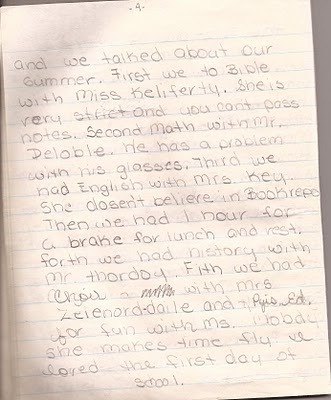 -4-
and we talked about our
summer. First we to Bible
with Miss Keliferty. She is
very strict and you cant pass
notes. Second math with Mr.
Deloble. He has a problem
with his glasses. Third we
had English with Mrs. Key.
She dosen't believe in Bookrepo
Then we had 1 hour for
a brake for lunch and rest.
forth we had history with
mr thordoy. Fith we had
with mrs
Zelenord-daile and
for fun with Ms.
she makes time fly. We
loved the first day of
school.